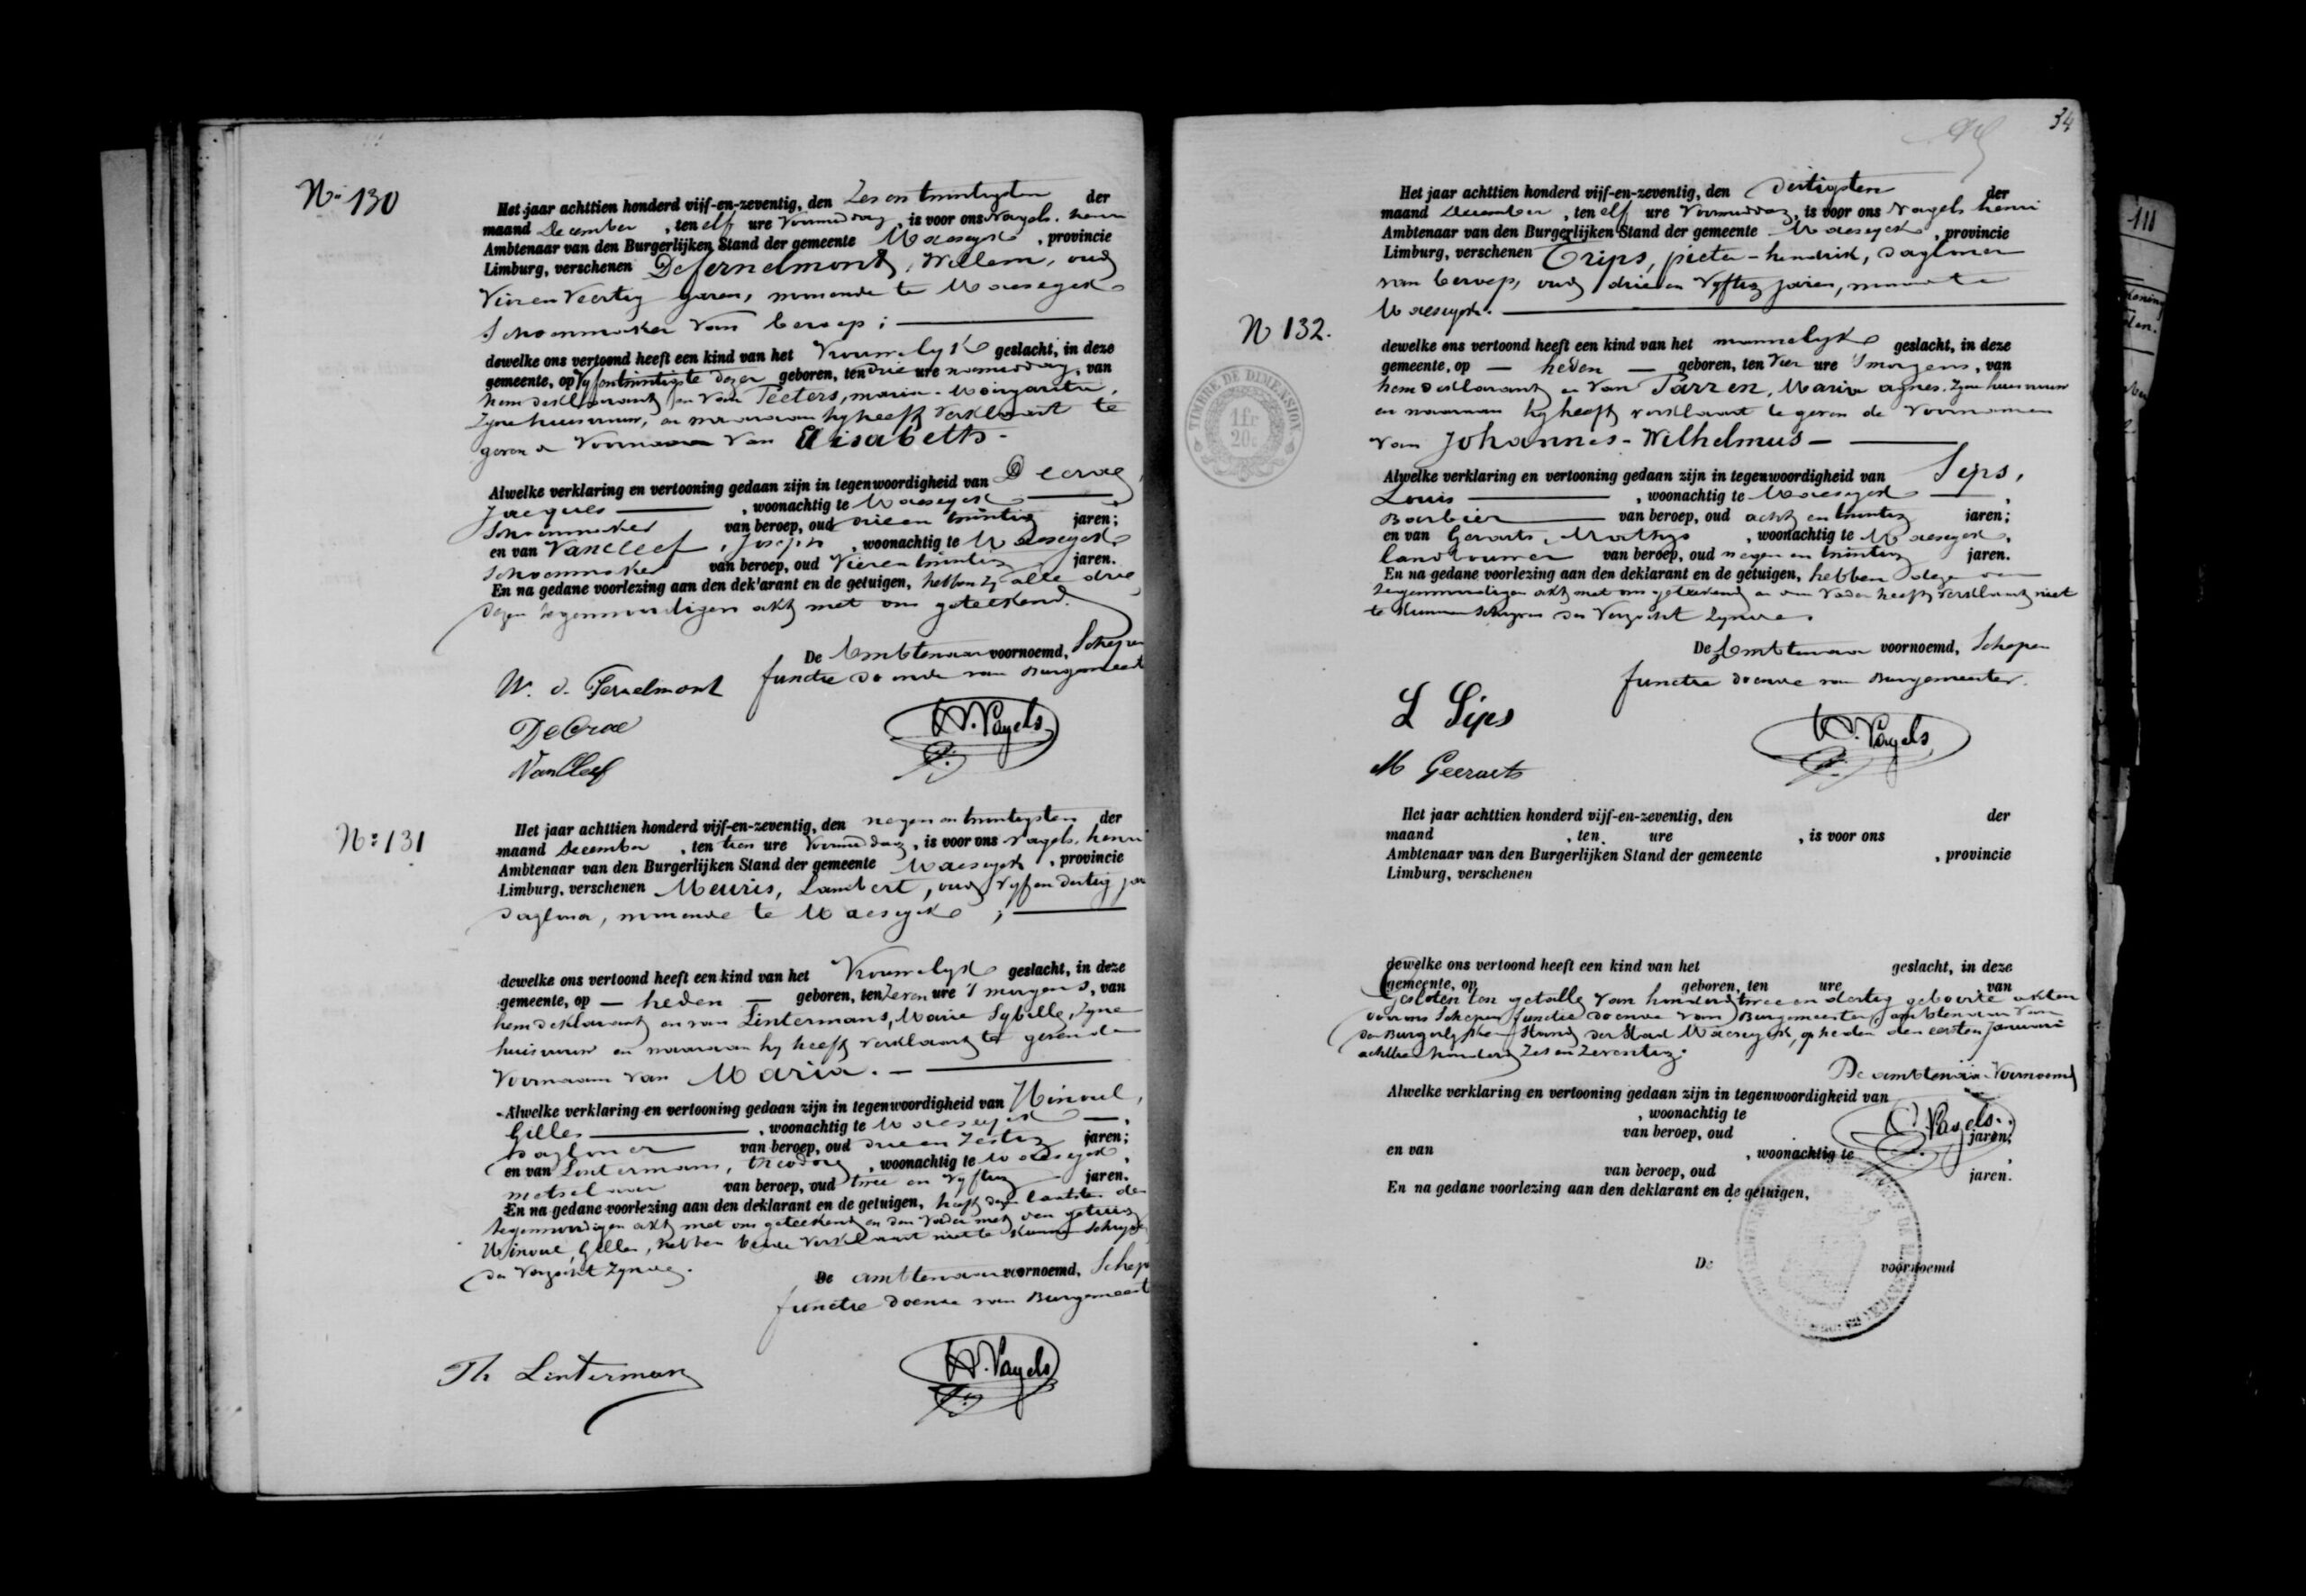 N° 130
Het jaar achttien honderd vijf-en-zeventig, den Zes en twintigsten der
maand December , ten elf ure Voormiddag , is voor ons Nagels, henri
Ambtenaar van den Burgerlijken Stand der gemeente Maeseyck , provincie
Limburg, verschenen Defernelmont, Willem, oud
Vier en Veertig jaren, wonende te Maeseyck
Schoenmaker van beroep ;
dewelke ons vertoond heeft een kind van het Vrouwelyk geslacht, in deze
gemeente, op Vyfentwintigste dezer geboren, ten drie ure namiddag, van
hem deklarant en van Peeters, maria-Margaritha,
Zyne huisvrouw, en waaraan hy heeft verklaart te
geven de Voornaam Van Elisabeth-
Alwelke verklaring en vertooning gedaan zijn in tegenwoordigheid van Decrae,
Jacques , woonachtig te Maeseyck
Schoenmaker van beroep, oud drie en twintig jaren;
en van Vancleef, Joseph , woonachtig te Maeseyck
Schoenmaker van beroep, oud Vier en twintig jaren.
En na gedane voorlezing aan den deklarant en de getuigen, hebben zy alle drie
dezen tegenwoordigen akt met ons geteekend.
De Ambtenaar voornoemd, Schepen
functie doende van Burgemeest
W. d. Fernelmont
DeCrae
VanCleef
H. Nagels
N° 131
Het jaar achttien honderd vijf-en-zeventig, den negen en twintigsten der
maand December , ten tien ure Voormiddag , is voor ons Nagels, henri
Ambtenaar van den Burgerlijken Stand der gemeente Maeseyck , provincie
Limburg, verschenen Meuris, Lambert, oud Vyf en dertig jar
dagloner, wonende te Maeseyck ;
dewelke ons vertoond heeft een kind van het Vrouwelyk geslacht, in deze
gemeente, op — heden — geboren, ten Zeven ure 's morgens, van
hem deklarant en van Lintermans, Marie Sybille, Zyne
huisvrouw en waaraan hy heeft verklaart te geven den
Voornaam van Maria. —
Alwelke verklaring en vertooning gedaan zijn in tegenwoordigheid van
Gilles , woonachtig te Maeseyck
Dagloner van beroep, oud drie en Zestig jaren;
en van Lintermans, theodore , woonachtig te Maeseyck ,
metselaar van beroep, oud twee en Vyftig jaren.
En na gedane voorlezing aan den deklarant en de getuigen, heeft deze laatste den
tegenwoordigen akt met ons geteekent en den vader met den getuig
Gilles, hebben beide verklaart niet te kunnen schryven
des Verzocht Zynde.
De ambtenaar voornoemd, Schepe
functie doende van Burgemeest
Th Lintermans
H. Nagels
34
N 132.
Het jaar achttien honderd vijf-en-zeventig, den dertigsten der
maand december , ten elf ure Voormiddag , is voor ons Nagels henri
Ambtenaar van den Burgerlijken Stand der gemeente Maeseyck , provincie
Limburg, verschenen Trips, pieter-hendrik, dagloner
van beroep, oud drie en Vyftig jaren, wonende te
Maeseyck.
dewelke ons vertoond heeft een kind van het mannelyk geslacht, in deze
gemeente, op — heden — geboren, ten Vier ure 's morgens, van
hem deklarant en Van Parren, Maria agnes Zyne huisvrouw
en waaraan hy heeft verklaart te geven de Voornamen
van Johannes-Wilhelmus —
Alwelke verklaring en vertooning gedaan zijn in tegenwoordigheid van Sips,
Louis , woonachtig te Maeseyck ,
Barbier van beroep, oud acht en twintig jaren;
en van Gerarts, Mathys , woonachtig te Maeseyck,
landbouwer van beroep, oud negen en twintig jaren.
En na gedane voorlezing aan den deklarant en de getuigen, hebben deze den
tegenwoordigen akt met ons geteekend en den Vader heeft verklaart niet
te kunnen schryven des Verzocht Zynde
De Ambtenaar voornoemd, Schepen
functie doende van Burgemeester.
L Sips
M Geeraets
H. Nagels
TIMBRE DE DIMENSION
1 fr
20 c
Het jaar achttien honderd vijf-en-zeventig, den der
maand , ten ure , is voor ons
Ambtenaar van den Burgerlijken Stand der gemeente , provincie
Limburg, verschenen
dewelke ons vertoond heeft een kind van het geslacht, in deze
gemeente, op geboren, ten ure van
Gesloten ten getalle van honderd twee en dertig geboorte akten
door ons Schepen functie doende van Burgemeester, ambtenaar van
den Burgerlyken Stand der Stad Maeseyck, op heden den eersten januari
achttien honderd Zes en Zeventig.
De ambtenaar Voornoemd
Alwelke verklaring en vertooning gedaan zijn in tegenwoordigheid van
, woonachtig te
van beroep, oud jaren;
H. Nagels
en van , woonachtig te ,
van beroep, oud jaren.
En na gedane voorlezing aan den deklarant en de getuigen,
De voornoemd